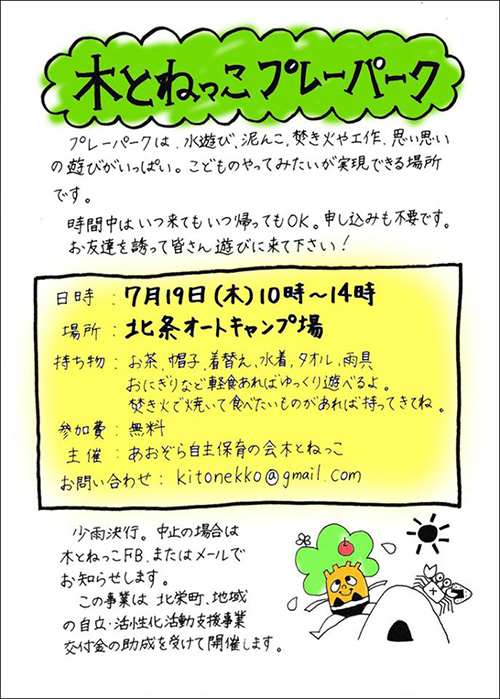 木とねっこプレーパーク
プレーパークは、水遊び、泥んこ、焚き火や工作、思い思い
の遊びがいっぱい。こどものやってみたいが実現できる場所
です。
時間中はいつ来てもいつ帰ってもOK。申し込みも不要です。
お友達を誘って皆さん遊びに来て下さい!
日時:7月19日(木)10時〜14時
場所:北条オートキャンプ場
持ち物:お茶、帽子、着替え、水着、タオル、雨具
おにぎりなど軽食あればゆっくり遊べるよ。
焚き火で焼いて食べたいものがあれば持ってきてね。
参加費:無料
主催:あおぞら自主保育の会木とねっこ
お問い合わせ:kitonekko@gmail.com
少雨決行。中止の場合は
木とねっこFB、またはメールで
お知らせします。
この事業は、北栄町、地域
の自立・活性化活動支援事業
交付金の助成を受けて開催します。